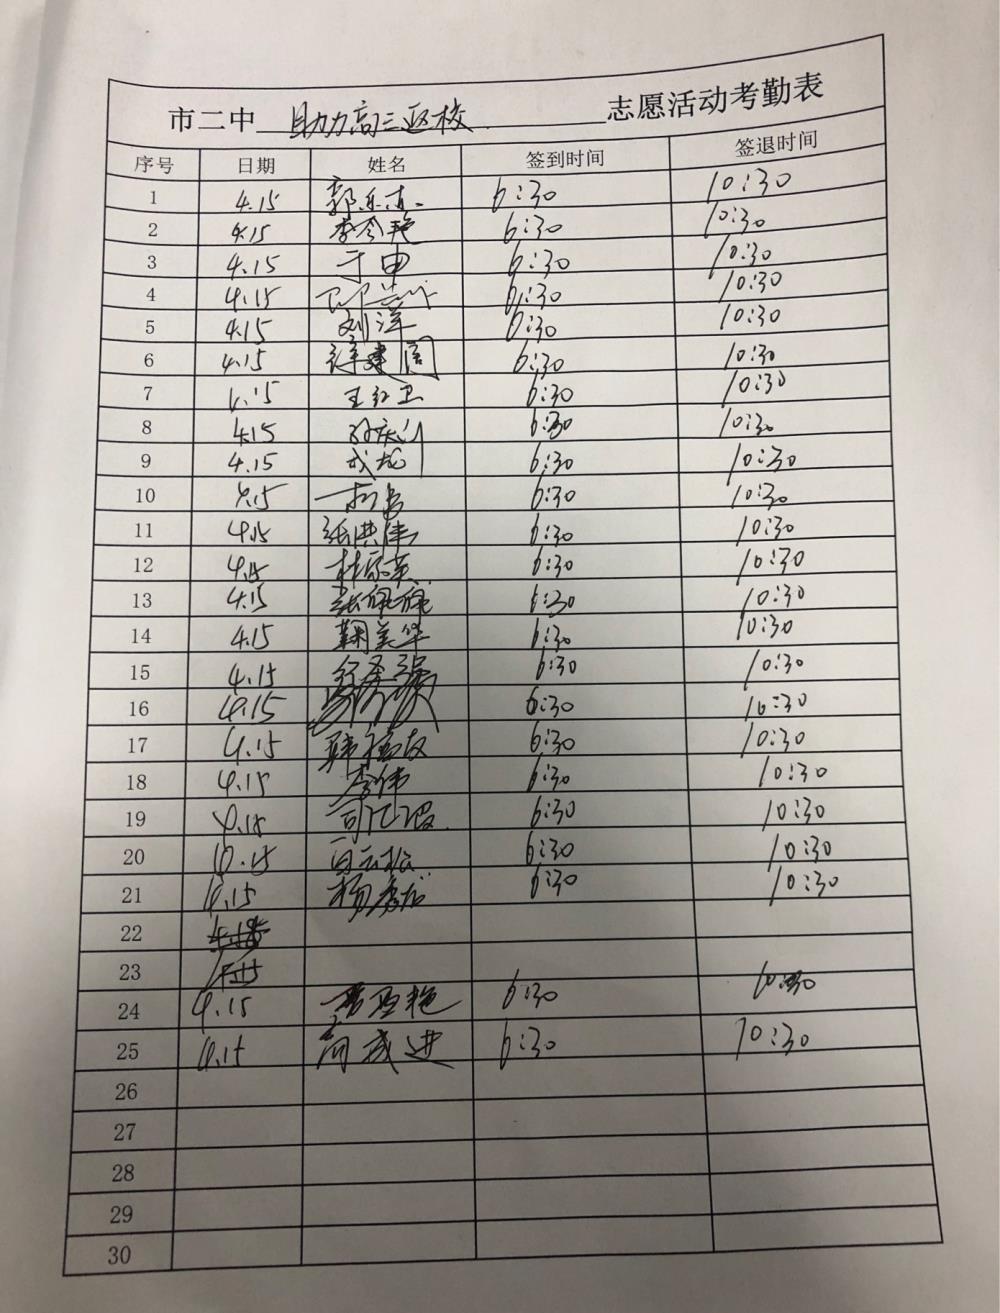 市二中 助力高三返校 志愿活动考勤表
序号 日期 姓名 签到时间 签退时间
1 4.15 6:30 10:30
2 4.15 李令艳 6:30 10:30
3 4.15 于申 6:30 10:30
4 4.15 6:30 10:30
5 4.15 刘洋 6:30 10:30
6 4.15 6:30 10:30
7 4.15 王红卫 6:30 10:30
8 4.15 孙庆川 6:30 10:30
9 4.15 成龙 6:30 10:30
10 4.15 6:30 10:30
11 4.15 张洪伟 6:30 10:30
12 4.15 杜家英 6:30 10:30
13 4.15 6:30 10:30
14 4.15 鞠美华 6:30 10:30
15 4.15 6:30 10:30
16 4.15 6:30 10:30
17 4.15 6:30 10:30
18 4.15 李伟 6:30 10:30
19 4.15 6:30 10:30
20 4.15 白云松 6:30 10:30
21 4.15 6:30 10:30
22
23
24 4.15 6:30 10:30
25 4.15 高成进 6:30 10:30
26
27
28
29
30